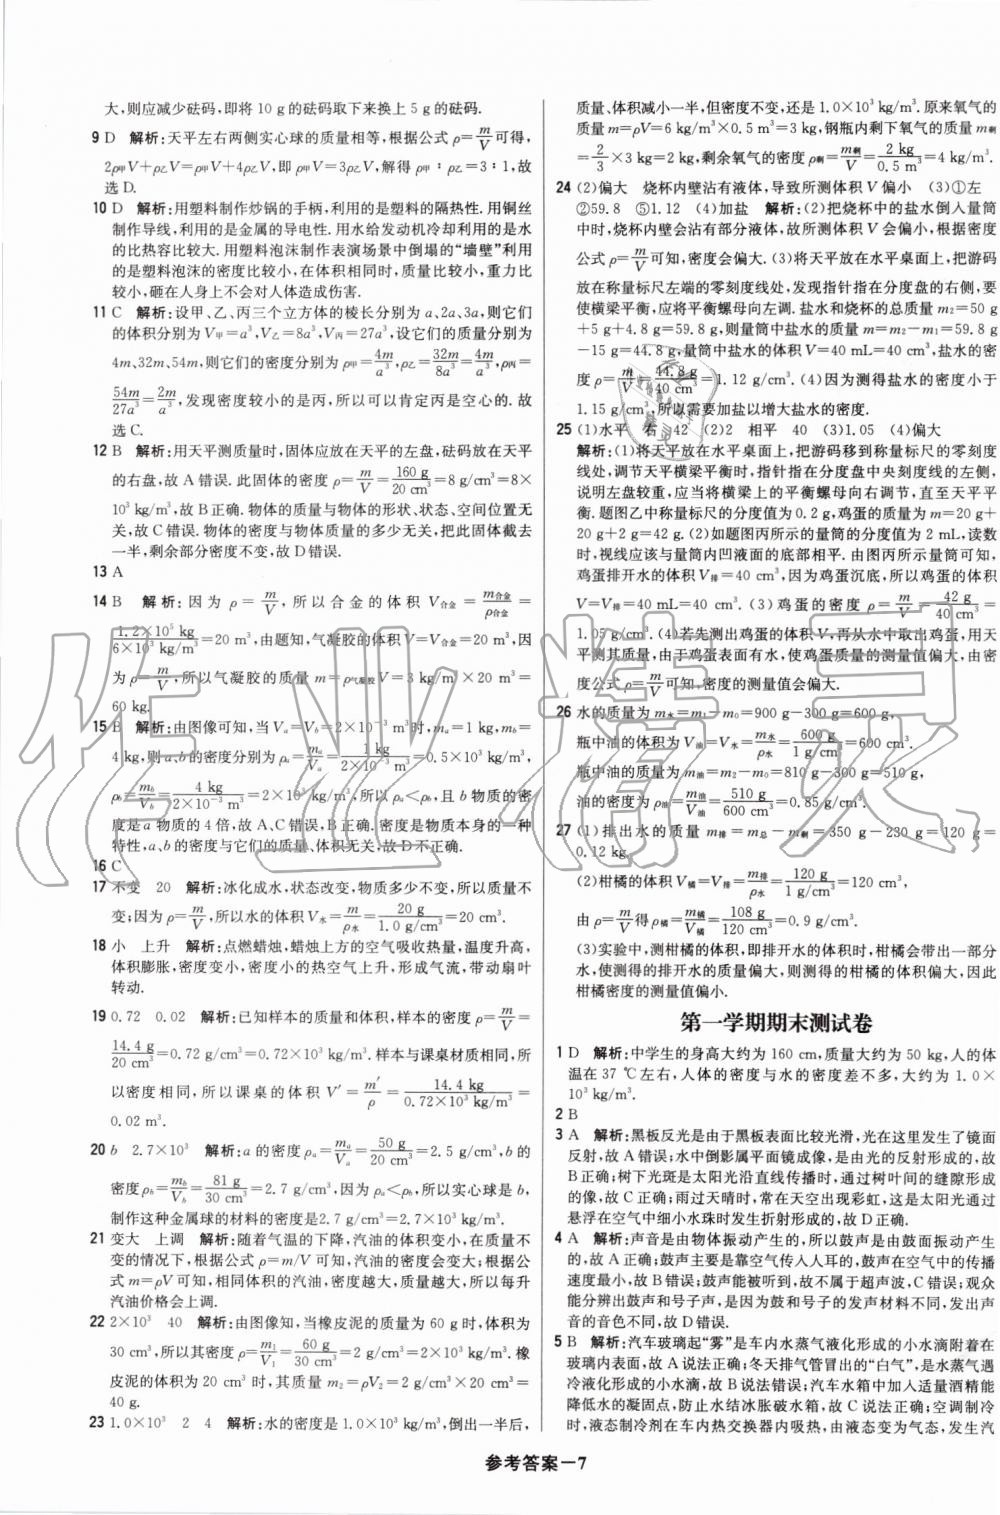 大,则应减少砝码,即将 10 g 的砝码取下来换上 5 g 的砝码.
9 D 解析:天平左右两侧实心球的质量相等,根据公式 ρ=m/V 可得,
2ρ甲V+ρ乙V=ρ甲V+4ρ乙V,即 ρ甲V=3ρ乙V,解得 ρ甲:ρ乙=3:1,故
选 D.
10 D 解析:用塑料制作炒锅的手柄,利用的是塑料的隔热性.用铜丝
制作导线,利用的是金属的导电性.用水给发动机冷却利用的是水
的比热容比较大.用塑料泡沫制作表演场景中倒塌的“墙壁”利用
的是塑料泡沫的密度比较小,在体积相同时,质量比较小,重力比
较小,砸在人身上不会对人体造成伤害.
11 C 解析:设甲、乙、丙三个立方体的棱长分别为 a、2a、3a,则它们
的体积分别为 V甲=a³,V乙=8a³,V丙=27a³,设它们的质量分别为
4m、32m、54m,则它们的密度分别为 ρ甲=4m/a³,ρ乙=32m/8a³=4m/a³,ρ丙=
54m/27a³=2m/a³,发现密度较小的是丙,所以可以肯定丙是空心的.故
选 C.
12 B 解析:用天平测质量时,固体应放在天平的左盘,砝码放在天平
的右盘,故 A 错误.此固体的密度 ρ=m/V=160 g/20 cm³=8 g/cm³=8×
10³ kg/m³,故 B 正确.物体的质量与物体的形状、状态、空间位置无
关,故 C 错误.物体的密度与物体质量的多少无关,把此固体截去
一半,剩余部分密度不变,故 D 错误.
13 A
14 B 解析:因为 ρ=m/V,所以合金的体积 V合金=m合金/ρ合金=
1.2×10⁵ kg/6×10³ kg/m³=20 m³,由题知,气凝胶的体积 V=V合金=20 m³,因
为 ρ=m/V,所以气凝胶的质量 m=ρ气凝胶V=3 kg/m³×20 m³=
60 kg.
15 B 解析:由图像可知,当 Va=Vb=2×10⁻³ m³时,ma=1 kg,mb=
4 kg,则 a、b的密度分别为 ρa=ma/Va=1 kg/2×10⁻³ m³=0.5×10³ kg/m³,
ρb=mb/Vb=4 kg/2×10⁻³ m³=2×10³ kg/m³,所以 ρa<ρb,且 b 物质的密
度是 a 物质的 4 倍,故 A、C 错误,B 正确.密度是物质本身的一种
特性,a、b 的密度与它们的质量、体积无关,故 D 不正确.
16 C
17 不变 20 解析:冰化成水,状态改变,物质多少不变,所以质量不
变;因为 ρ=m/V,所以水的体积 V水=m/ρ水=20 g/1.0 g/cm³=20 cm³.
18 小 上升 解析:点燃蜡烛,蜡烛上方的空气吸收热量,温度升高,
体积膨胀,密度变小,密度小的热空气上升,形成气流,带动扇叶
转动.
19 0.72 0.02 解析:已知样本的质量和体积,样本的密度 ρ=m/V=
14.4 g/20 cm³=0.72 g/cm³=0.72×10³ kg/m³.样本与课桌材质相同,所
以密度相同,则课桌的体积 V′=m′/ρ=14.4 kg/0.72×10³ kg/m³=
0.02 m³.
20 b 2.7×10³ 解析:a 的密度 ρa=ma/Va=50 g/20 cm³=2.5 g/cm³,b 的
密度 ρb=mb/Vb=81 g/30 cm³=2.7 g/cm³,因为 ρa<ρb,所以实心球是 b,
制作这种金属球的材料的密度是2.7 g/cm³=2.7×10³ kg/m³.
21 变大 上调 解析:随着气温的下降,汽油的体积变小,在质量不
变的情况下,根据公式 ρ=m/V 可知,汽油的密度会变大;根据
m=ρV 可知,相同体积的汽油,密度越大,质量越大,所以每升
汽油价格会上调.
22 2×10³ 40 解析:由图像知,当橡皮泥的质量为 60 g 时,体积为
30 cm³,所以其密度 ρ=m₁/V₁=60 g/30 cm³=2 g/cm³=2×10³ kg/m³.橡
皮泥的体积为 20 cm³ 时,其质量 m₂=ρV₂=2 g/cm³×20 cm³=
40 g.
23 1.0×10³ 2 4 解析:水的密度是 1.0×10³ kg/m³,倒出一半后,
质量、体积减小一半,但密度不变,还是 1.0×10³ kg/m³.原来氧气的
质量 m=ρV=6 kg/m³×0.5 m³=3 kg,钢瓶内剩下氧气的质量 m剩
=2/3×3 kg=2 kg,剩余氧气的密度 ρ剩=m剩/V=2 kg/0.5 m³=4 kg/m³.
24 (2)偏大 烧杯内壁沾有液体,导致所测体积 V 偏小 (3)①左
②59.8 ⑤1.12 (4)加盐 解析:(2)把烧杯中的盐水倒入量筒
中时,烧杯内壁会沾有部分液体,故所测体积 V 会偏小,根据密度
公式 ρ=m/V可知,密度会偏大.(3)将天平放在水平桌面上,把游码
放在称量标尺左端的零刻度线处,发现指针指在分度盘的右侧,要
使横梁平衡,应将平衡螺母向左调.盐水和烧杯的总质量 m₂=50 g
+5 g+4.8 g=59.8 g,则量筒中盐水的质量 m=m₂-m₁=59.8 g
-15 g=44.8 g,量筒中盐水的体积 V=40 mL=40 cm³,盐水的密
度 ρ=m/V=44.8 g/40 cm³=1.12 g/cm³.(4)因为测得盐水的密度小于
1.15 g/cm³,所以需要加盐以增大盐水的密度.
25 (1)水平 右 42 (2)2 相平 40 (3)1.05 (4)偏大
解析:(1)将天平放在水平桌面上,把游码移到称量标尺的零刻度
线处,调节天平横梁平衡时,指针指在分度盘中央刻度线的左侧,
说明左盘较重,应将横梁上的平衡螺母向右调节,直至天平平
衡.题图乙中称量标尺的分度值为 0.2 g,鸡蛋的质量 m=20 g+
20 g+2 g=42 g.(2)如题图丙所示的量筒的分度值为 2 mL,读数
时,视线应该与量筒内凹液面的底部相平.由图丙所示量筒可知,
鸡蛋排开水的体积 V排=40 cm³,因为鸡蛋沉底,所以鸡蛋的体积
V=V排=40 mL=40 cm³.(3)鸡蛋的密度 ρ=m/V=42 g/40 cm³=
1.05 g/cm³.(4)若先测出鸡蛋的体积 V,再从水中取出鸡蛋,用天
平测其质量,由于鸡蛋表面有水,使鸡蛋质量的测量值偏大,由密
度公式 ρ=m/V可知,密度的测量值会偏大.
26 水的质量为 m水=m₁-m₀=900 g-300 g=600 g,
瓶中油的体积为 V油=V水=m水/ρ水=600 g/1 g/cm³=600 cm³.
瓶中油的质量为 m油=m₂-m₀=810 g-300 g=510 g,
油的密度为 ρ油=m油/V油=510 g/600 cm³=0.85 g/cm³.
27 (1)排出水的质量 m排=m总-m剩=350 g-230 g=120 g=
0.12 kg.
(2)柑橘的体积 V橘=V排=m排/ρ水=120 g/1 g/cm³=120 cm³,
由 ρ=m/V得 ρ橘=m橘/V橘=108 g/120 cm³=0.9 g/cm³.
(3)实验中,测柑橘的体积,即排开水的体积时,柑橘会带出一部分
水,使测得的排开水的质量偏大,则测得的柑橘的体积偏大,因此
柑橘密度的测量值偏小.
第一学期期末测试卷
1 D 解析:中学生的身高大约为 160 cm,质量大约为 50 kg,人的体
温在 37 ℃左右,人体的密度与水的密度差不多,大约为 1.0×
10³ kg/m³.
2 B
3 A 解析:黑板反光是由于黑板表面比较光滑,光在这里发生了镜面
反射,故 A 错误;水中倒影属平面镜成像,是由光的反射形成的,故
B 正确;树下光斑是太阳光沿直线传播时,通过树叶间的缝隙形成
的像,故 C 正确;雨过天晴时,常在天空出现彩虹,这是太阳光通过
悬浮在空气中细小水珠时发生折射形成的,故 D 正确.
4 A 解析:声音是由物体振动产生的,所以鼓声是由鼓面振动产生
的,故 A 正确;鼓声主要是靠空气传入人耳的,鼓声在空气中的传播
速度最小,故 B 错误;鼓声能被听到,故不属于超声波,故 C 错误;观众
能分辨出鼓声和号子声,是因为鼓声和号子的发声材料不同,发出声
音的音色不同,故 D 错误.
5 B 解析:汽车玻璃起“雾”是车内水蒸气液化形成的小水滴附着在
玻璃内表面,故 A 说法正确;冬天排气管冒出的“白气”,是水蒸气遇
冷液化形成的小水滴,故 B 说法错误;汽车水箱中加入适量酒精能
降低水的凝固点,防止水结冰胀破水箱,故 C 说法正确;空调制冷
时,液态制冷剂在车内热交换器内吸热,由液态变为气态,发生汽
参考答案-7
作业精灵